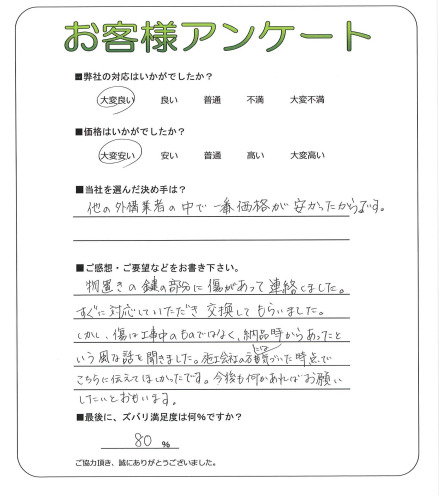 お客様アンケート
■弊社の対応はいかがでしたか？
大変良い 良い 普通 不満 大変不満
■価格はいかがでしたか？
大変安い 安い 普通 高い 大変高い
■当社を選んだ決め手は？
他の外構業者の中で一番価格が安かったからです。
■ご感想・ご要望などをお書き下さい。
物置きの鍵の部分に傷があって連絡しました。
すぐに対応していただき交換してもらいました。
しかし、傷は工事中のものではなく、納品時からあったと
いう風な話を聞きました。施工会社の方気づいた時点で
こちらに伝えてほしかったです。今後も何かあればお願い
したいとおもいます。
■最後に、ズバリ満足度は何%ですか？
80 %
ご協力頂き、誠にありがとうございました。